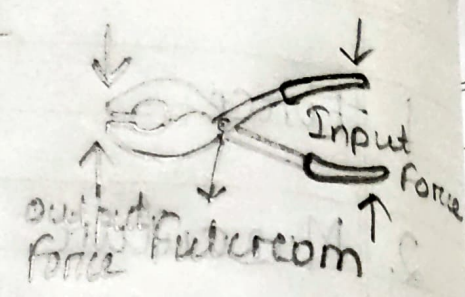 Input
Force
Output
Force
Fulcreom